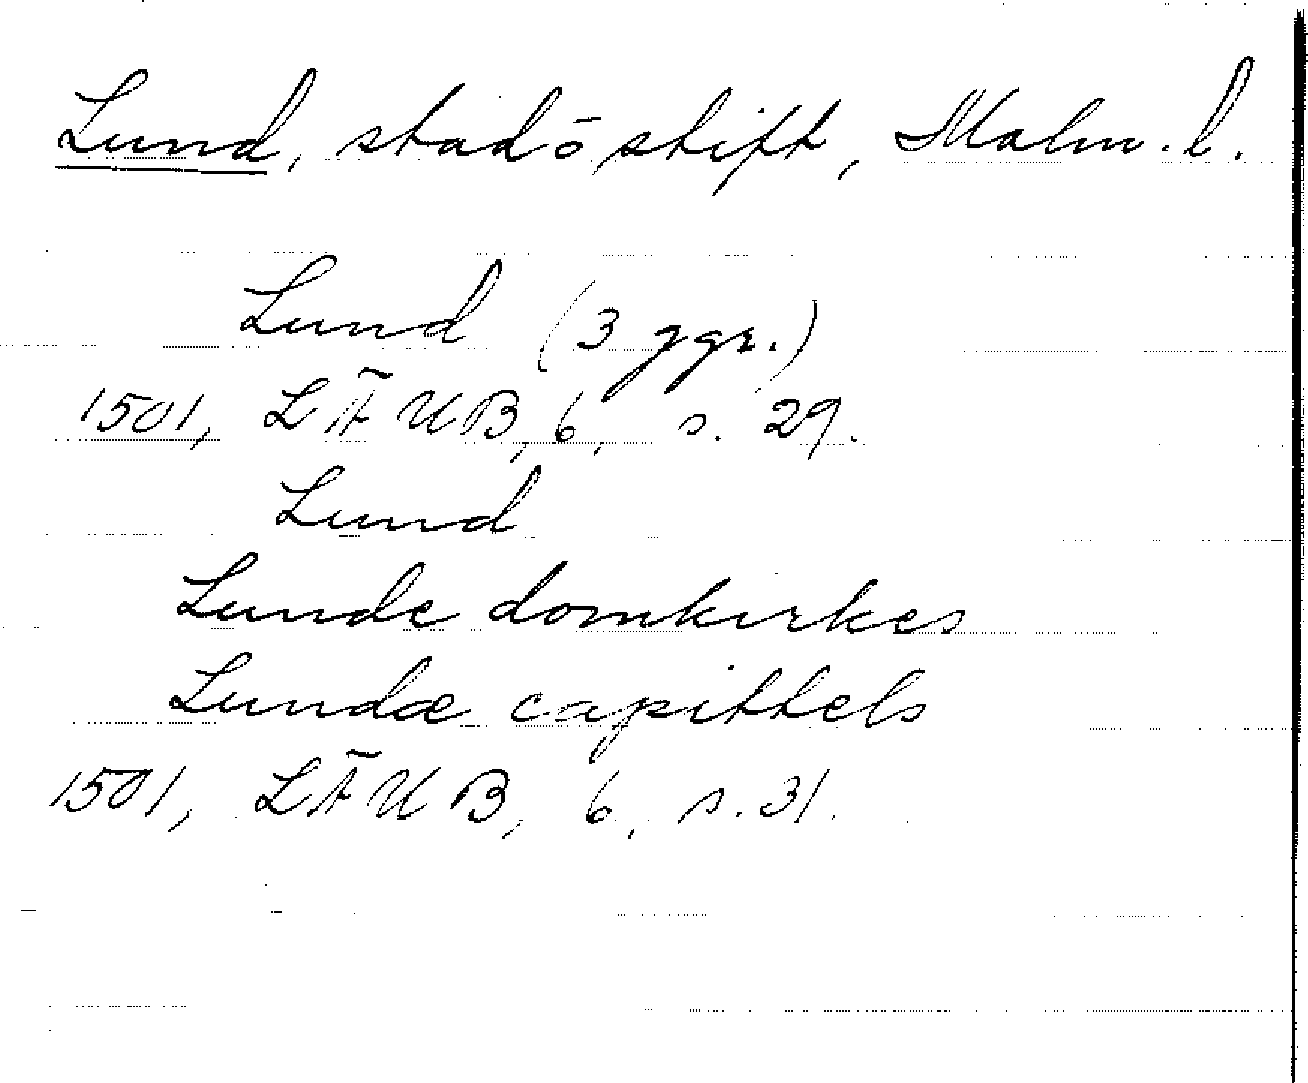 Lund, stad o stift, Malm. l.
Lund (3 ggr.)
1501, LÄUB, 6, s. 29.
Lund
Lunde domkirkes
Lundæ capittels
1501, LÄUB, 6, s. 31.